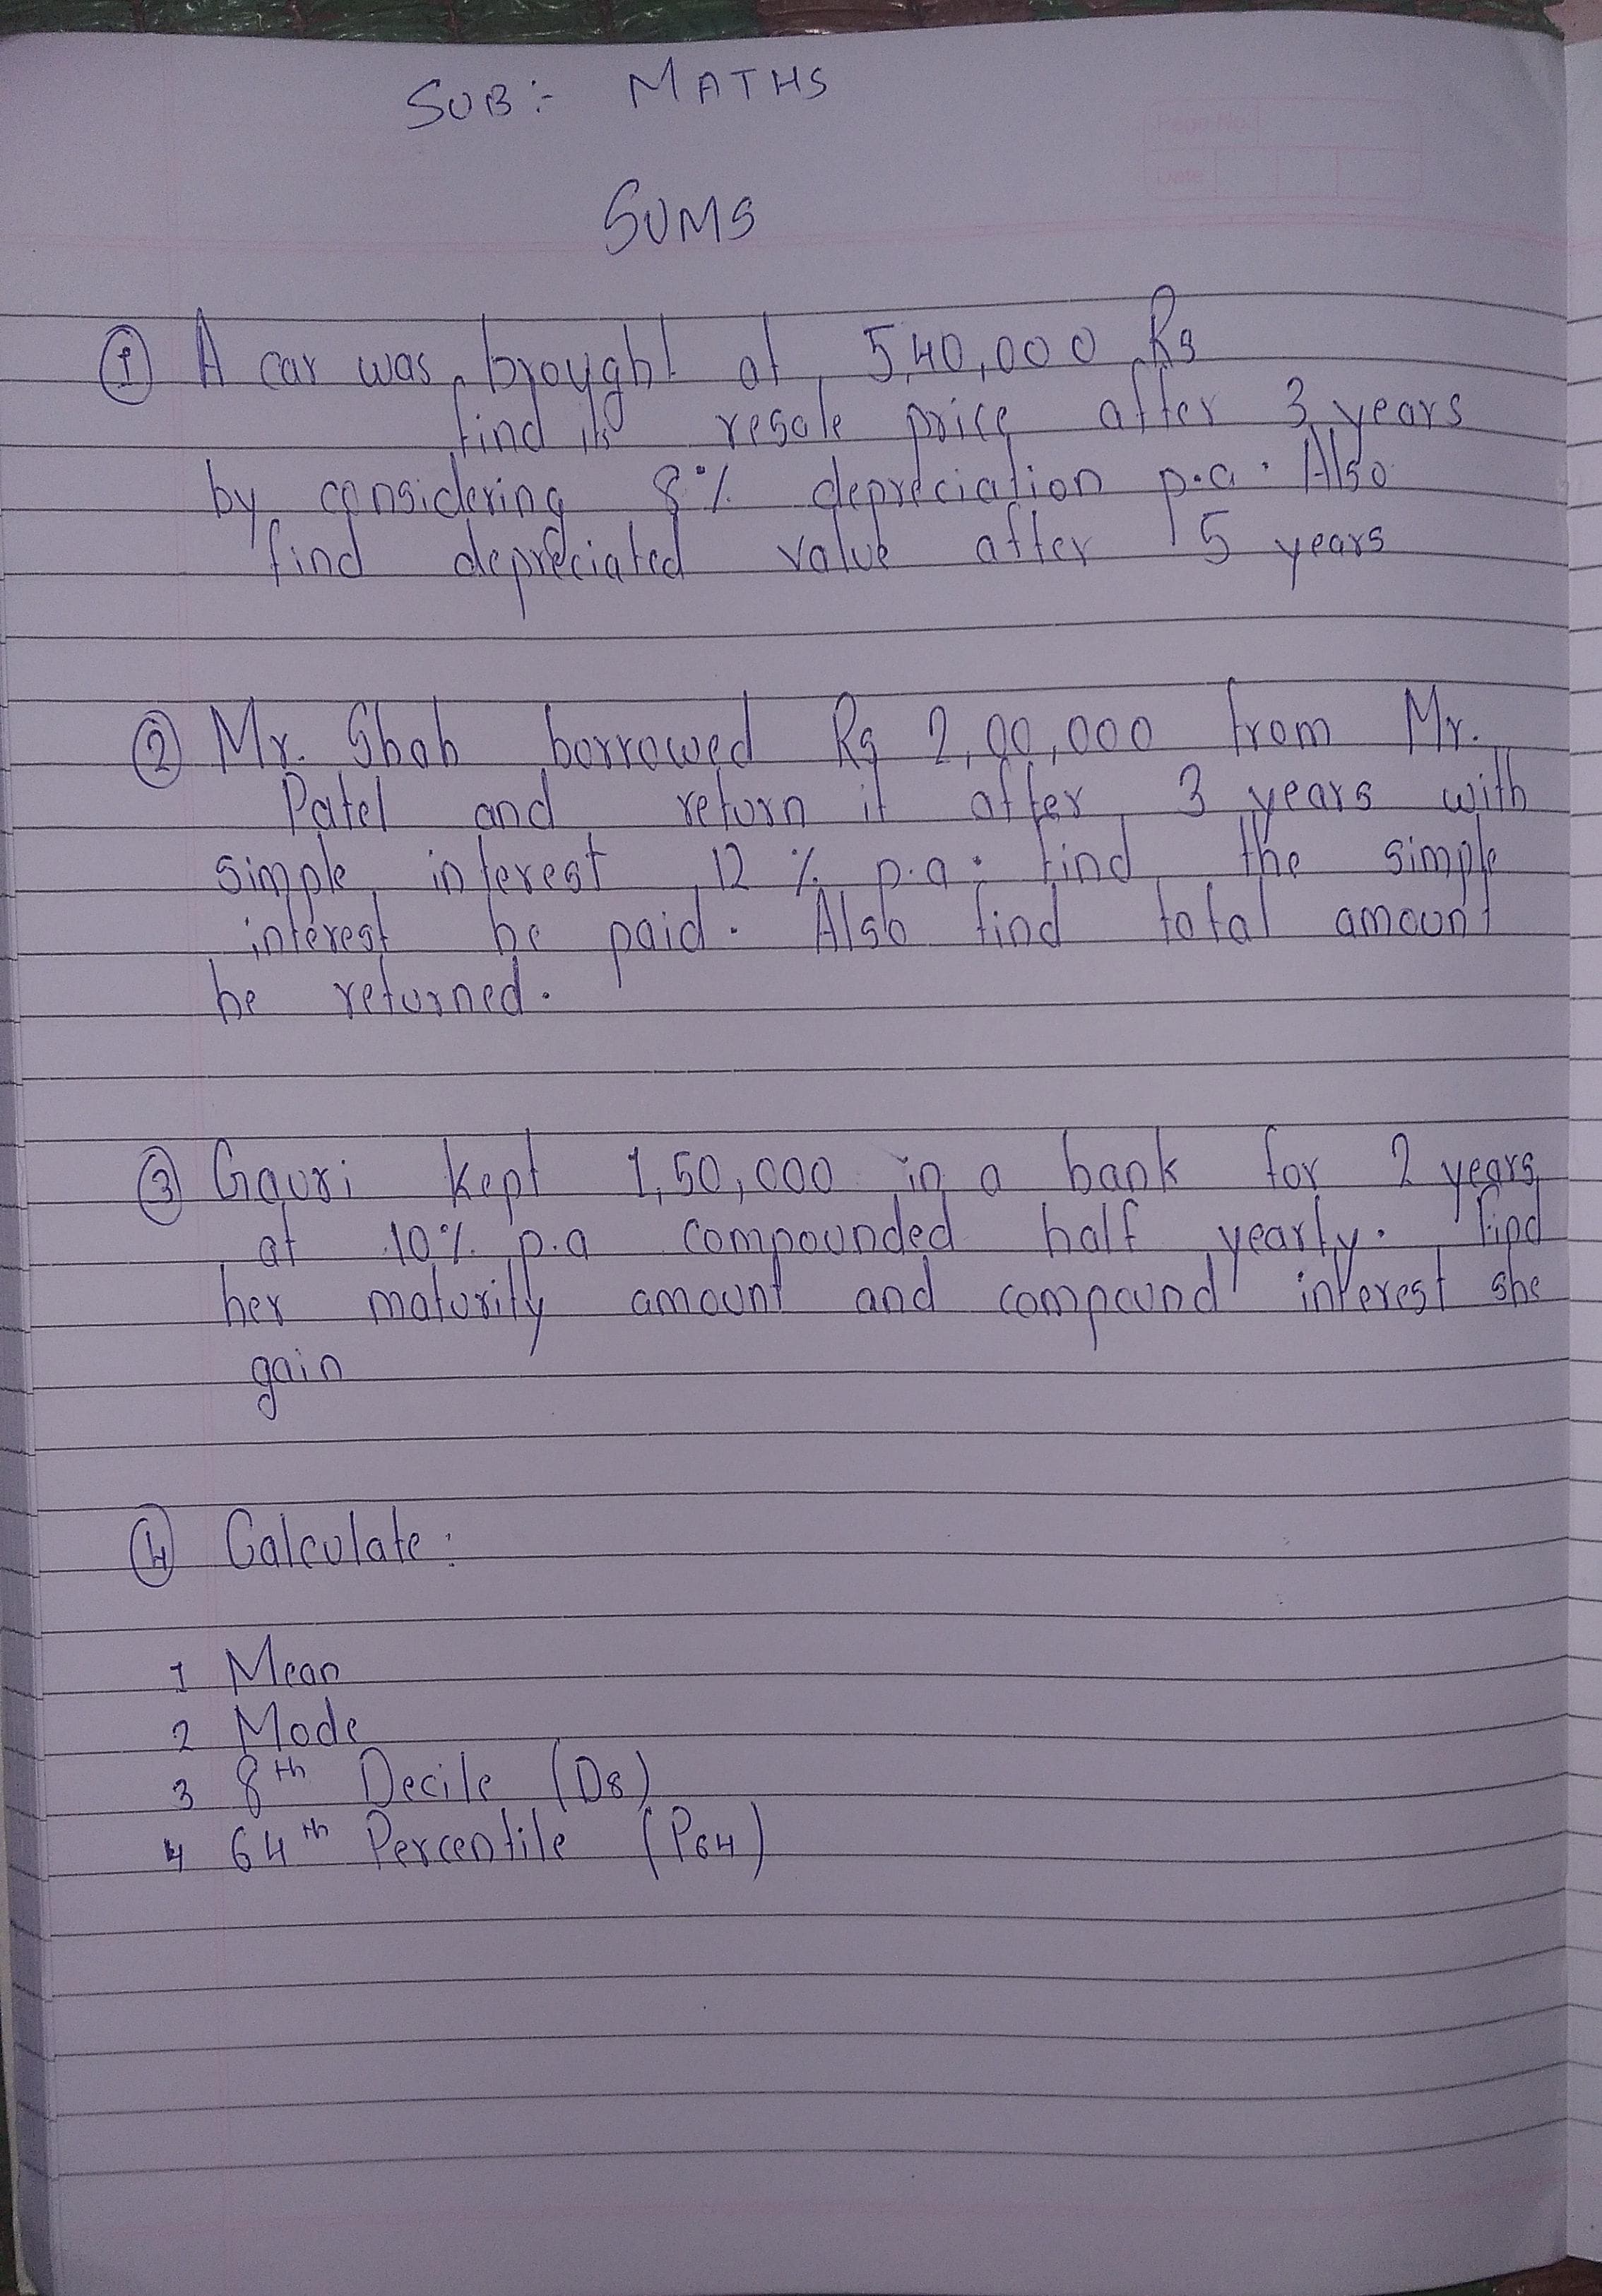 Page No.
Date
SUB :- MATHS
SUMS
① A car was brought at 5,40,000 Rs
find its resale price after 3 years
by considering 8% depreciation p.a. Also
find depreciated value after 5 years
② Mr. Shah borrowed Rs 2,00,000 from Mr.
Patel and return it after 3 years with
simple interest 12 % p.a. find the simple
interest he paid. Also find total amount
he returned.
③ Gauri kept 1,50,000 in a bank for 2 years
at 10% p.a compounded half yearly. find
her maturity amount and compound interest she
gain
④ Calculate :
1 Mean
2 Mode
3 8th Decile (D8)
4 64th Percentile (P64)